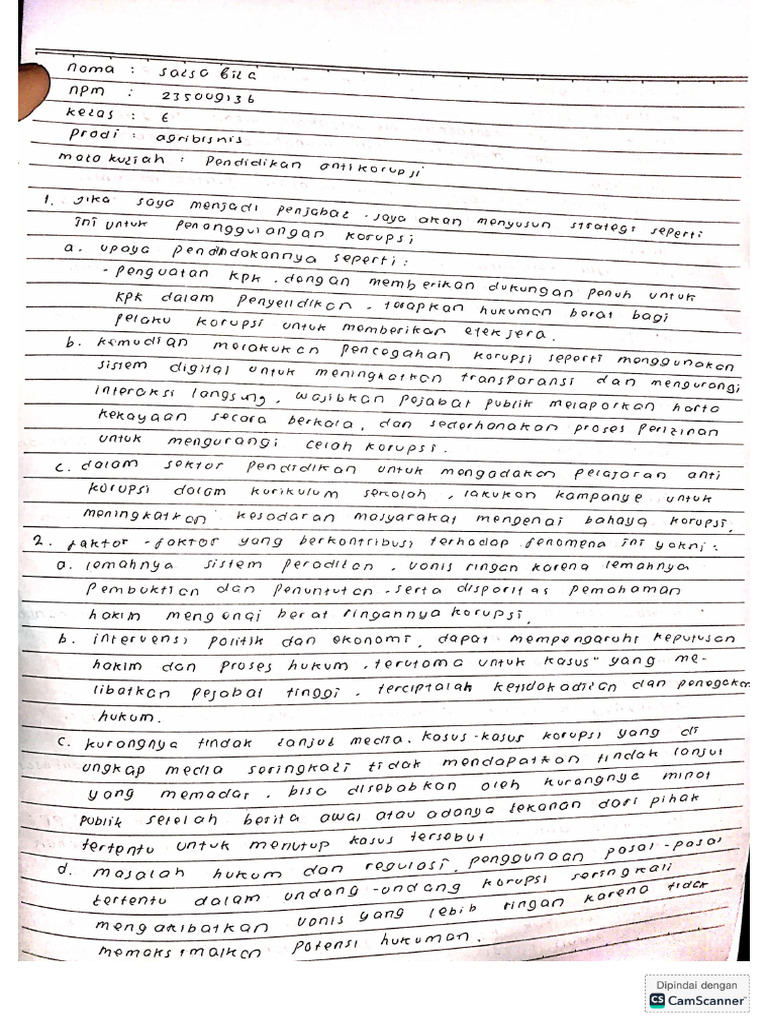 nama : salsa bila
npm : 235009136
kelas : E
prodi : agribisnis
mata kuliah : Pendidikan antikorupsi
1. jika saya menjadi penjabat. saya akan menyusun strategi seperti
ini untuk penanggulangan korupsi
a. upaya penindakannya seperti :
- penguatan KPK. dengan memberikan dukungan penuh untuk
KPK dalam penyelidikan. terapkan hukuman berat bagi
pelaku korupsi untuk memberikan efek jera.
b. kemudian melakukan pencegahan korupsi seperti menggunakan
sistem digital untuk meningkatkan transparansi dan mengurangi
interaksi langsung, wajibkan pejabat publik melaporkan harta
kekayaan secara berkala, dan sederhanakan proses perizinan
untuk mengurangi celah korupsi.
c. dalam sektor pendidikan untuk mengadakan pelajaran anti
korupsi dalam kurikulum sekolah, lakukan kampanye untuk
meningkatkan kesadaran masyarakat mengenai bahaya korupsi.
2. faktor-faktor yang berkontribusi terhadap fenomena ini yakni :
a. lemahnya sistem peradilan, vonis ringan karena lemahnya
pembuktian dan penuntutan. serta disparitas pemahaman
hakim mengenai berat ringannya korupsi.
b. intervensi politik dan ekonomi, dapat mempengaruhi keputusan
hakim dan proses hukum. terutama untuk kasus" yang me-
libatkan pejabat tinggi. terciptalah ketidakadilan dan penegakan
hukum.
c. kurangnya tindak lanjut media. kasus-kasus korupsi yang di
ungkap media seringkali tidak mendapatkan tindak lanjut
yang memadai. bisa disebabkan oleh kurangnya minat
publik setelah berita awal atau adanya tekanan dari pihak
tertentu untuk menutup kasus tersebut
d. masalah hukum dan regulasi, penggunaan pasal-pasal
tertentu dalam undang-undang korupsi seringkali
mengakibatkan vonis yang lebih ringan karena tidak
memaksimalkan potensi hukuman.
Dipindai dengan
CS CamScanner